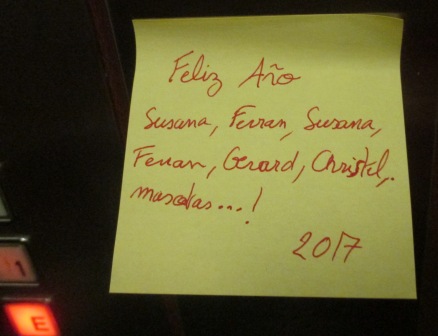 Feliz Año
Susana, Ferran, Susana,
Ferran, Gerard, Christel,.
mascotas...!
2017
1
E